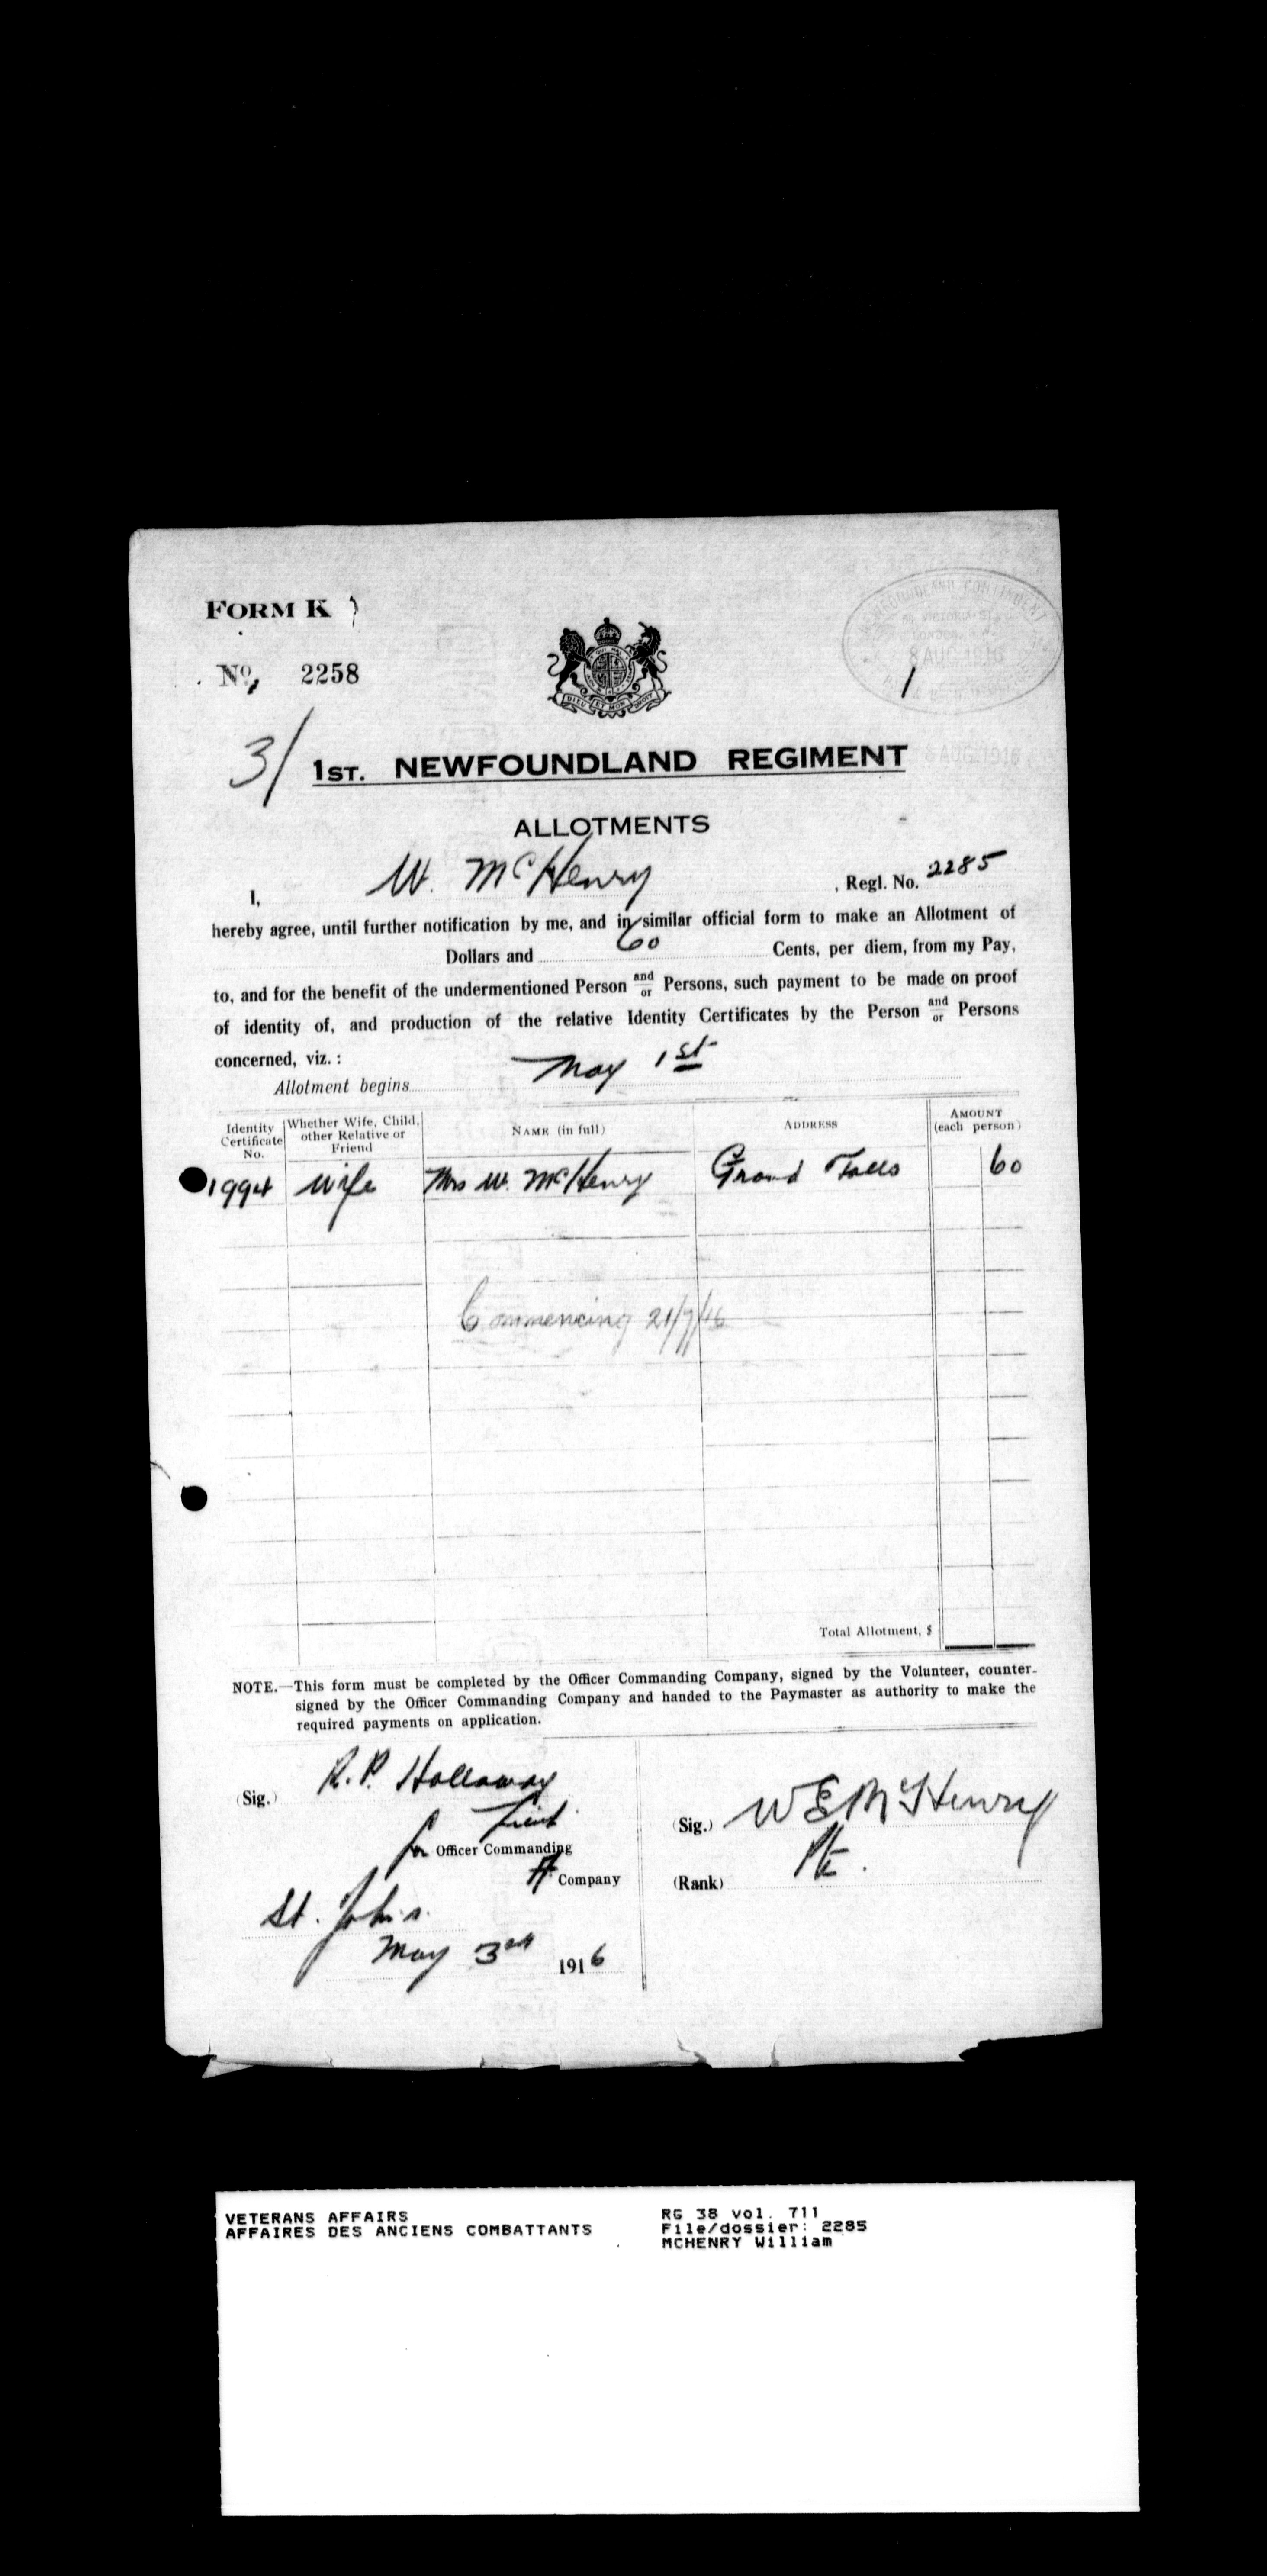 FORM K
No. 2258
NEWFOUNDLAND CONTINGENT
58 VICTORIA ST.
LONDON, S.W.
8 AUG. 1916
1
DIEU ET MON DROIT
3/
1ST. NEWFOUNDLAND REGIMENT
8 AUG. 1916
ALLOTMENTS
I, W. McHenry, Regl. No. 2285
hereby agree, until further notification by me, and in similar official form to make an Allotment of
Dollars and 60 Cents, per diem, from my Pay,
to, and for the benefit of the undermentioned Person and or Persons, such payment to be made on proof
of identity of, and production of the relative Identity Certificates by the Person and or Persons
concerned, viz. :
Allotment begins May 1st
Identity Certificate No. Whether Wife, Child, other Relative or Friend NAME (in full) ADDRESS AMOUNT (each person)
1994 Wife Mrs W. McHenry Grand Falls 60
Commencing 21/7/16
Total Allotment, $
NOTE.—This form must be completed by the Officer Commanding Company, signed by the Volunteer, counter-
signed by the Officer Commanding Company and handed to the Paymaster as authority to make the
required payments on application.
(Sig.) R.P. Holloway
Lieut
for Officer Commanding
Company
(Sig.) W E McHenry
(Rank) Pte.
St. John's
May 3rd 1916
VETERANS AFFAIRS
AFFAIRES DES ANCIENS COMBATTANTS
RG 38 vol. 711
File/dossier: 2285
MCHENRY William